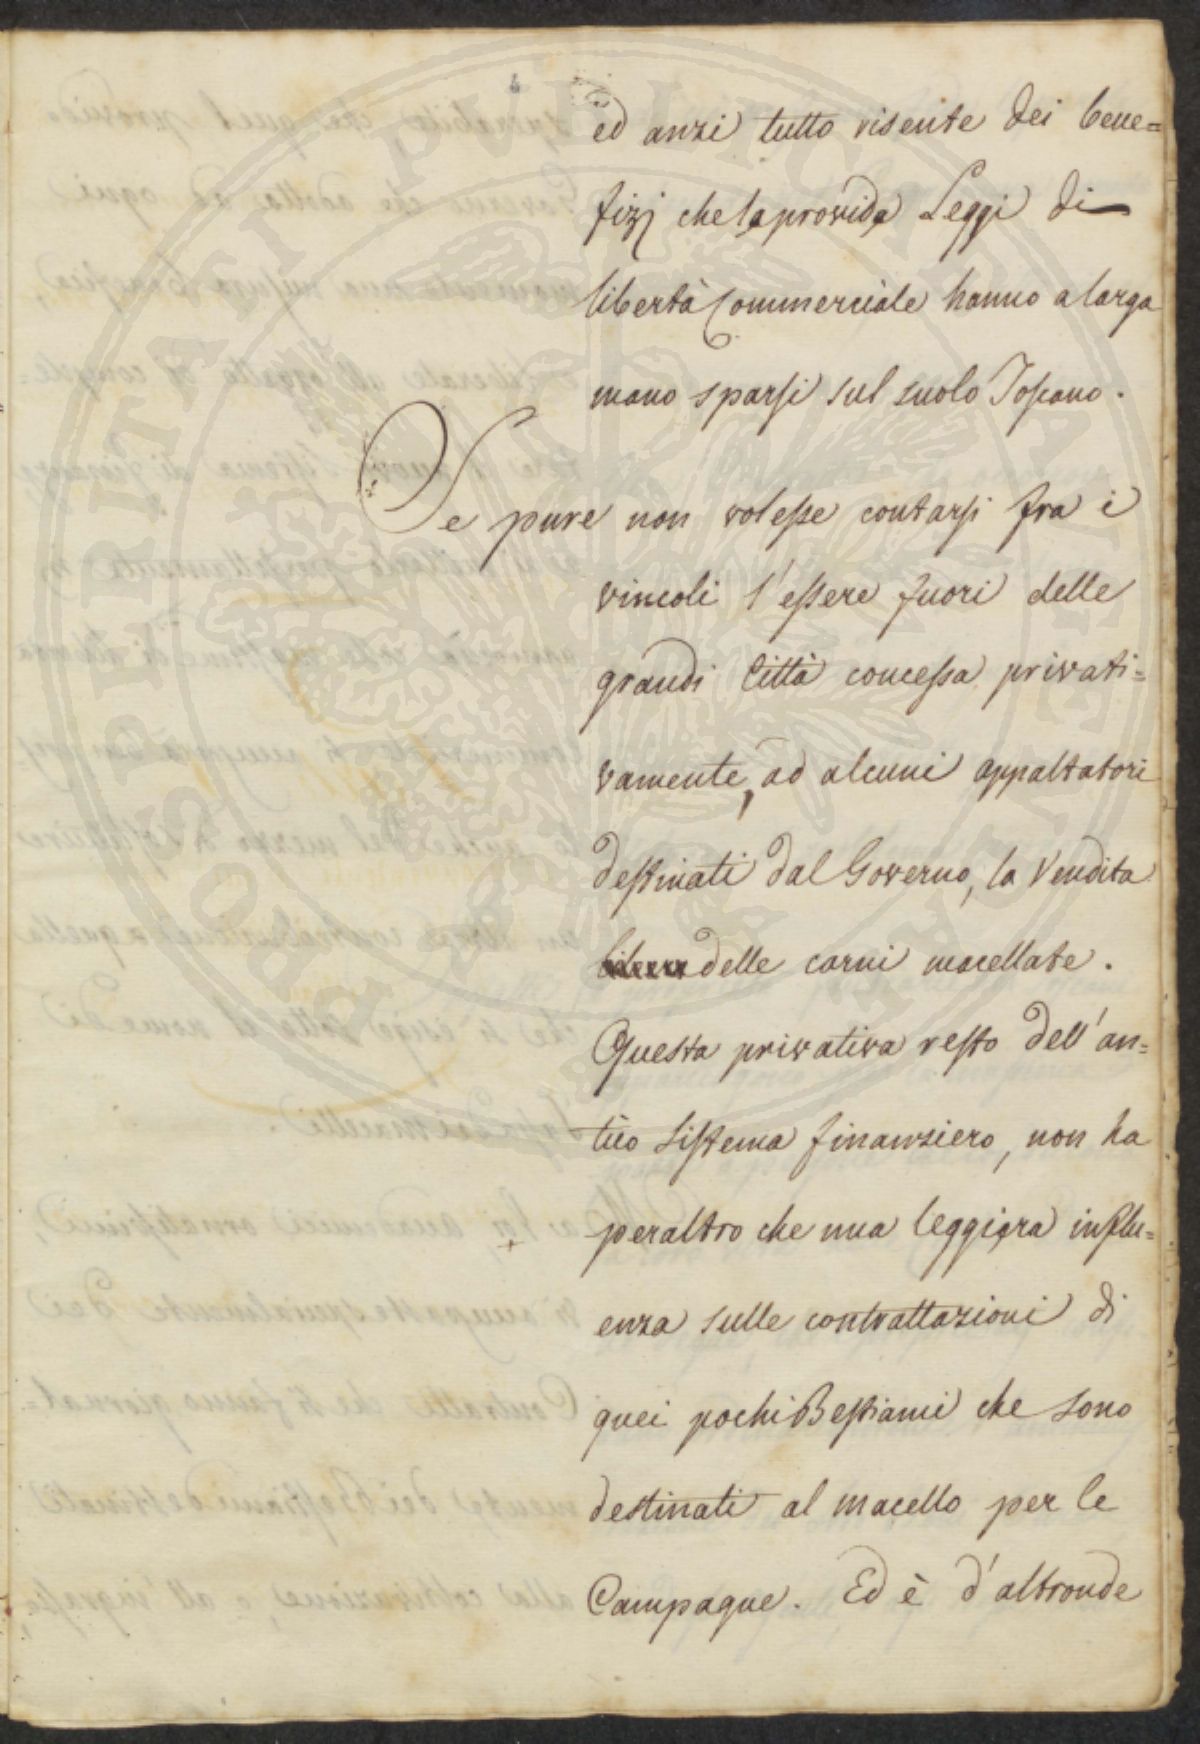 ed anzi tutto risente dei bene=
fizj che la provida Leggi di
libertà Commerciale hanno a larga
mano sparsi sul suolo Toscano.
Se pure non volesse contarsi fra i
vincoli l'essere fuori delle
grandi Città concessa privati=
vamente, ad alcuni appaltatori
destinati dal Governo, la Vendita
delle carni macellate.
Questa privativa resto dell'an=
tico Sistema finanziero, non ha
peraltro che una leggiera influ=
enza sulle contrattazioni di
quei pochi Bestiami che sono
destinati al macello per le
Campagne. Ed è d'altronde
PROSPERITATI PUBLICAE AUGENDAE